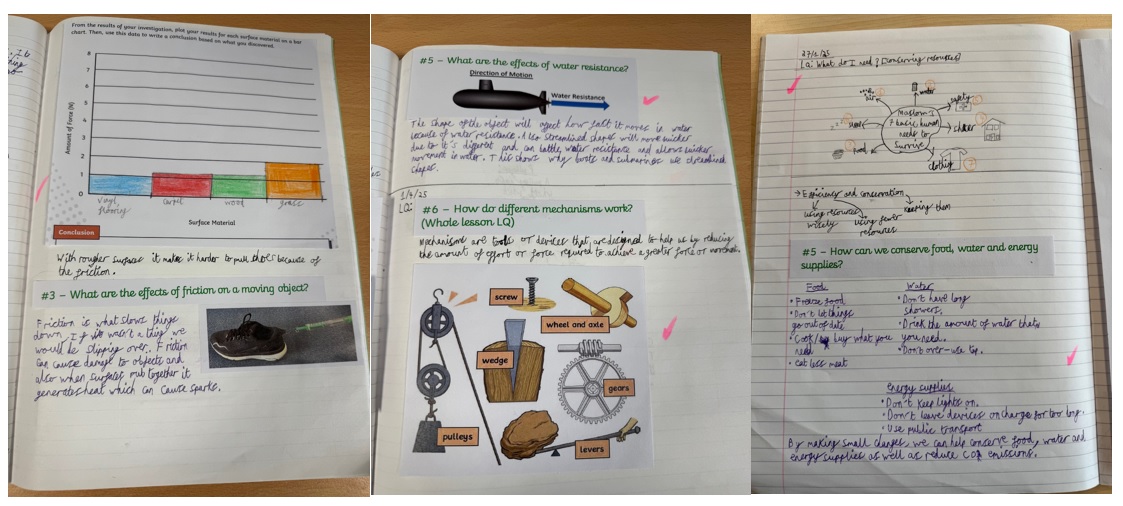 From the results of your investigation, plot your results for each surface material on a bar
chart. Then, use this data to write a conclusion based on what you discovered.
Amount of Force (N)
8
7
6
5
4
3
2
1
0
vinyl carpet wood grass
flooring
Surface Material
Conclusion
With rougher surfaces it makes it harder to pull shoes because of
the friction.
#3 – What are the effects of friction on a moving object?
Friction is what slows things
down. If it wasn't a thing we
would be slipping over. Friction
can cause danger to objects and
also when surfaces rub together it
generates heat which can cause sparks.
#5 – What are the effects of water resistance?
Direction of Motion
Water Resistance
The shape of the object will affect how fast it moves in water
because of water resistance. Also streamlined shapes will move quicker
due to it's different and can battle water resistance and allows quicker
movement in water. This shows why boats and submarines are streamlined
shapes.
1/4/25
LQ:
#6 – How do different mechanisms work?
(Whole lesson LQ)
Mechanisms are tools or devices that are designed to help us by reducing
the amount of effort or force required to achieve a greater force or movement.
screw
wheel and axle
wedge
gears
pulleys
levers
LQ: What do I need? (Conserving resources)
air
water
safety
Maslow's
7 basic human
needs to
survive
sleep
shelter
food
clothing
→ Efficiency and conservation
using resources
wisely
using fewer
resources
keeping them
#5 – How can we conserve food, water and energy
supplies?
Food
• Freeze food
• Don't let things
go out of date
• Cook/buy what you
need
• eat less meat
Water
• Don't have long
showers.
• Drink the amount of water thats
you need.
• Don't over-use tap.
energy supplies
• Don't keep lights on.
• Don't leave devices on charge for too long.
• Use public transport
By making small changes, we can help conserve food, water and
energy supplies as well as reduce CO2 emissions.